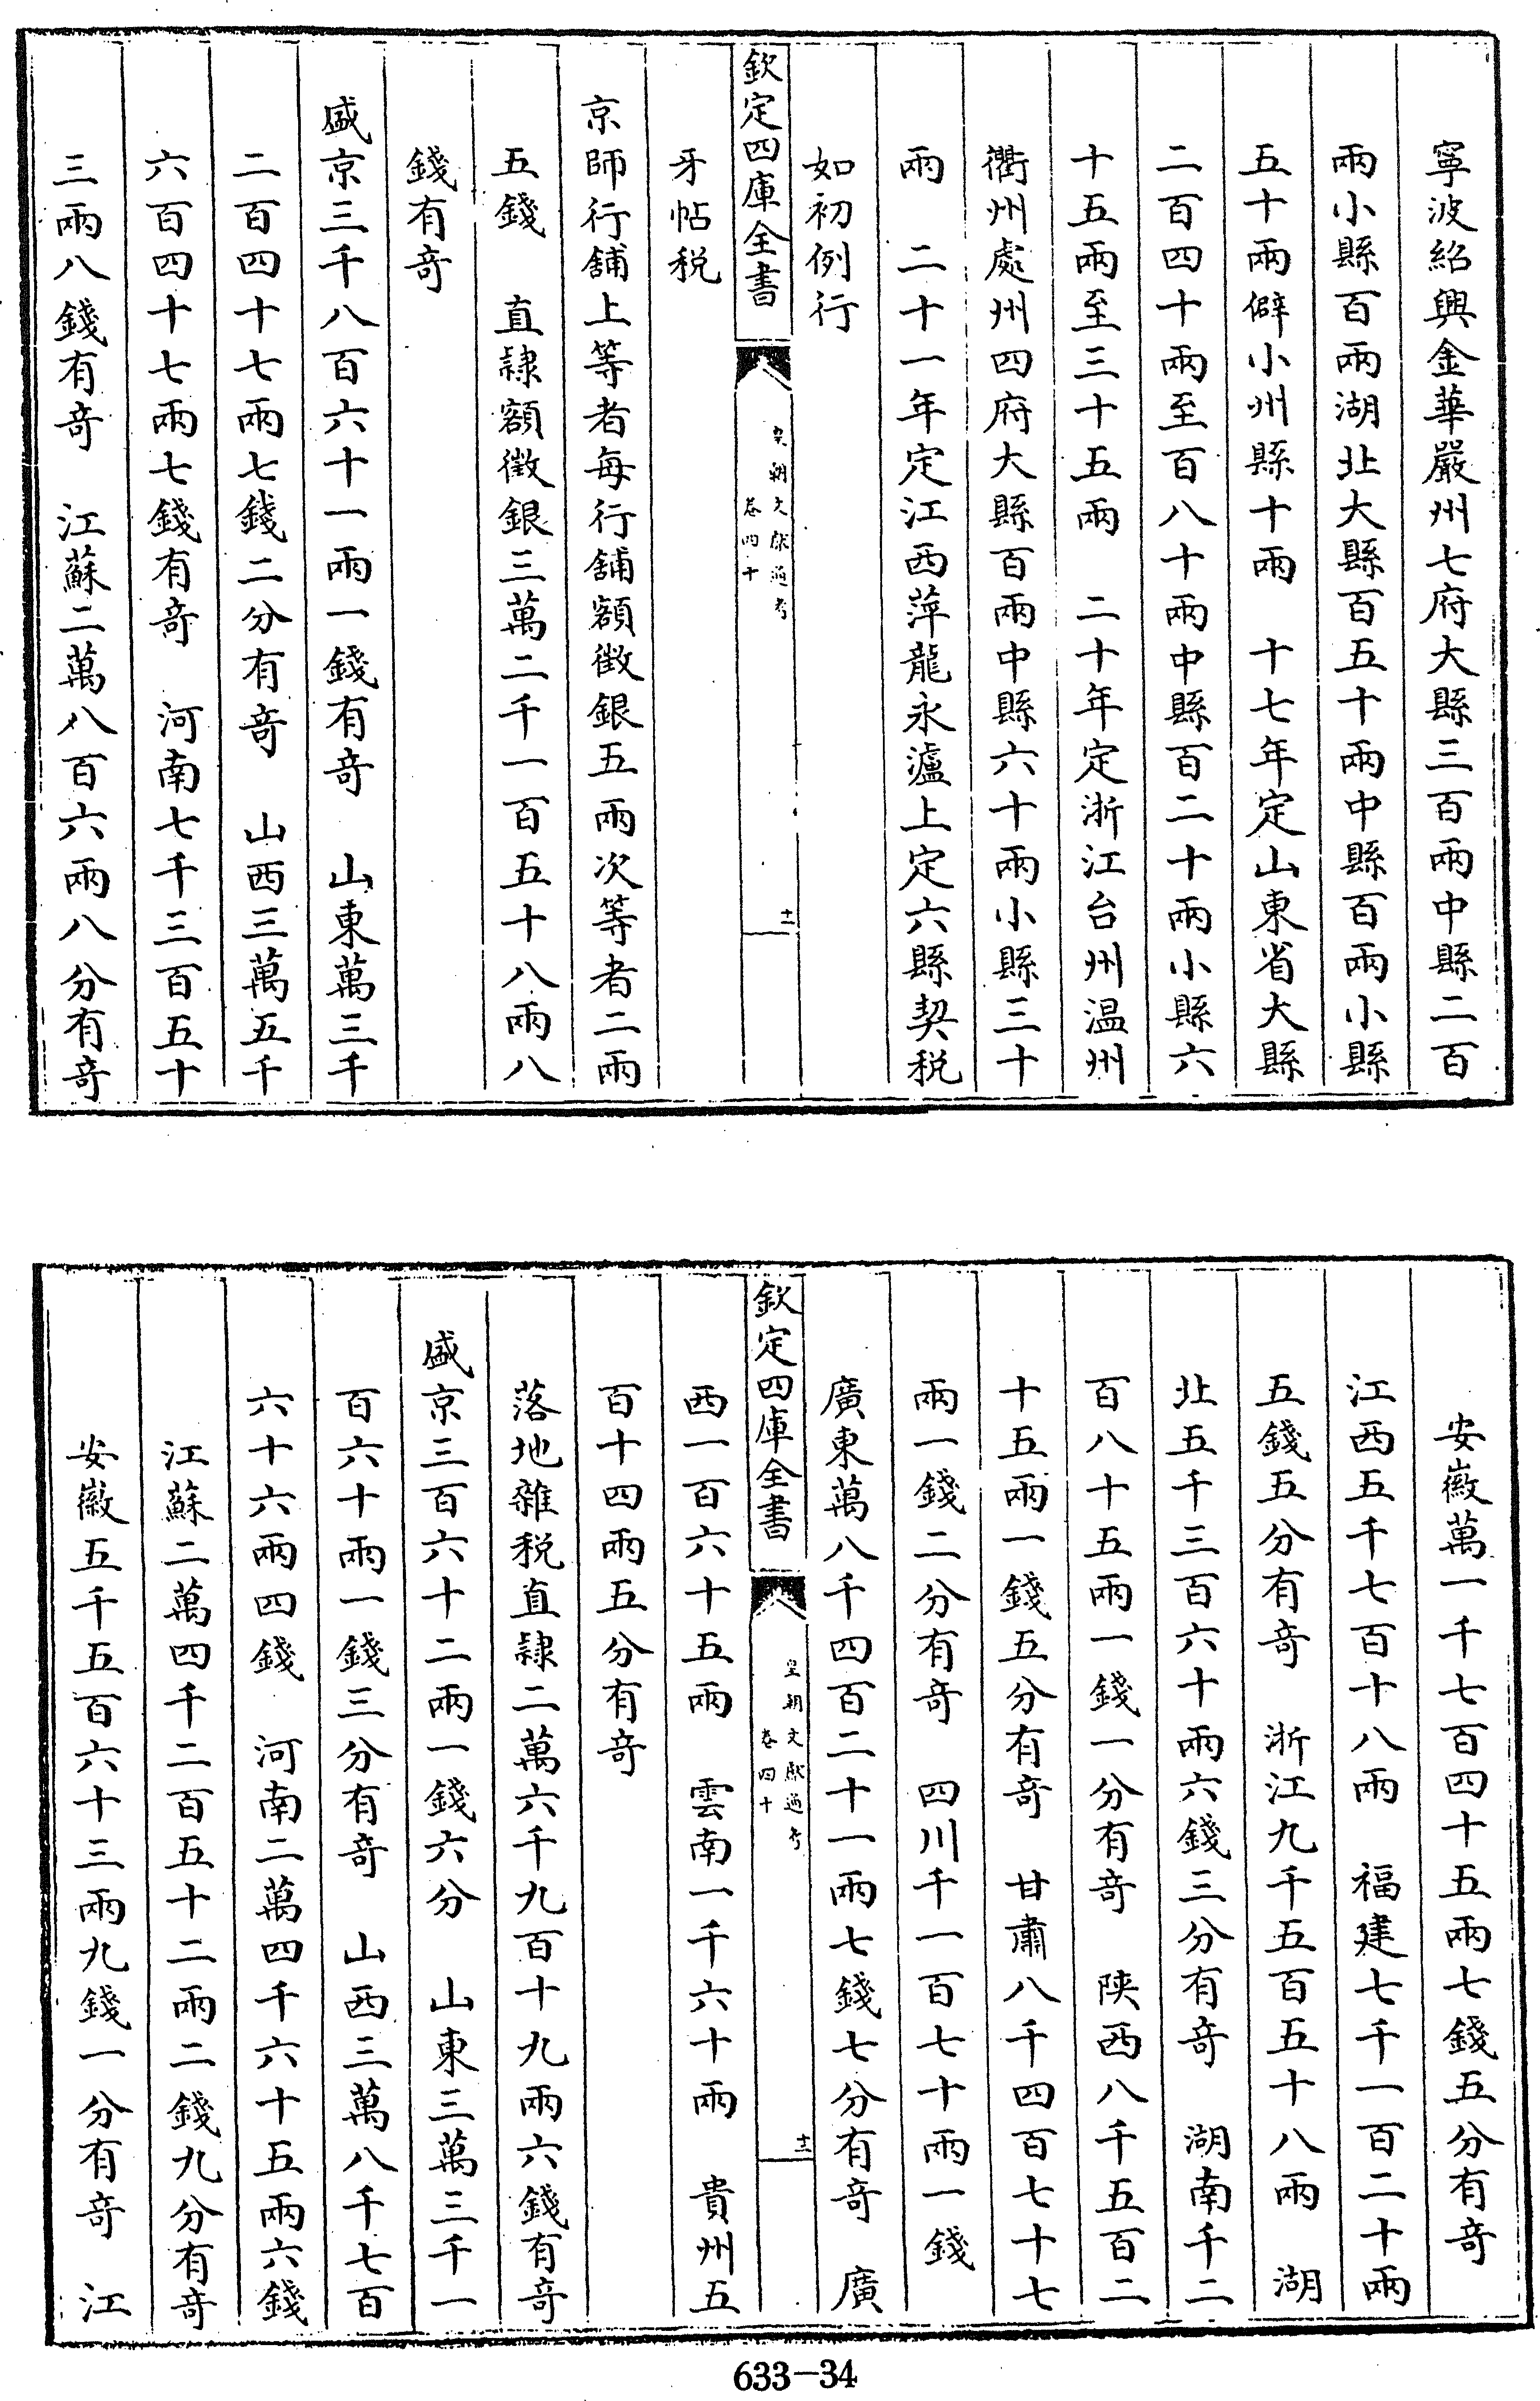 寧波紹興金華嚴州七府大縣三百兩中縣二百
兩小縣百兩湖北大縣百五十兩中縣百兩小縣
五十兩僻小州縣十兩　十七年定山東省大縣
二百四十兩至百八十兩中縣百二十兩小縣六
十五兩至三十五兩　二十年定浙江台州温州
衢州處州四府大縣百兩中縣六十兩小縣三十
兩　二十一年定江西萍龍永瀘上定六縣契税
如初例行
欽定四庫全書
皇朝文獻通考
卷四十
十一
牙帖税
京師行舖上等者每行舖額徴銀五兩次等者二兩
五錢　直隷額徴銀三萬二千一百五十八兩八
錢有奇
盛京三千八百六十一兩一錢有奇　山東萬三千
二百四十七兩七錢二分有奇　山西三萬五千
六百四十七兩七錢有奇　河南七千三百五十
三兩八錢有奇　江蘇二萬八百六兩八分有奇
安徽萬一千七百四十五兩七錢五分有奇
江西五千七百十八兩　福建七千一百二十兩
五錢五分有奇　浙江九千五百五十八兩　湖
北五千三百六十兩六錢三分有奇　湖南千二
百八十五兩一錢一分有奇　陜西八千五百二
十五兩一錢五分有奇　甘肅八千四百七十七
兩一錢二分有奇　四川千一百七十兩一錢
廣東萬八千四百二十一兩七錢七分有奇　廣
欽定四庫全書
皇朝文獻通考
卷四十
十二
西一百六十五兩　雲南一千六十兩　貴州五
百十四兩五分有奇
落地雜税直隷二萬六千九百十九兩六錢有奇
盛京三百六十二兩一錢六分　山東三萬三千一
百六十兩一錢三分有奇　山西三萬八千七百
六十六兩四錢　河南二萬四千六十五兩六錢
江蘇二萬四千二百五十二兩二錢九分有奇
安徽五千五百六十三兩九錢一分有奇　江
633-34